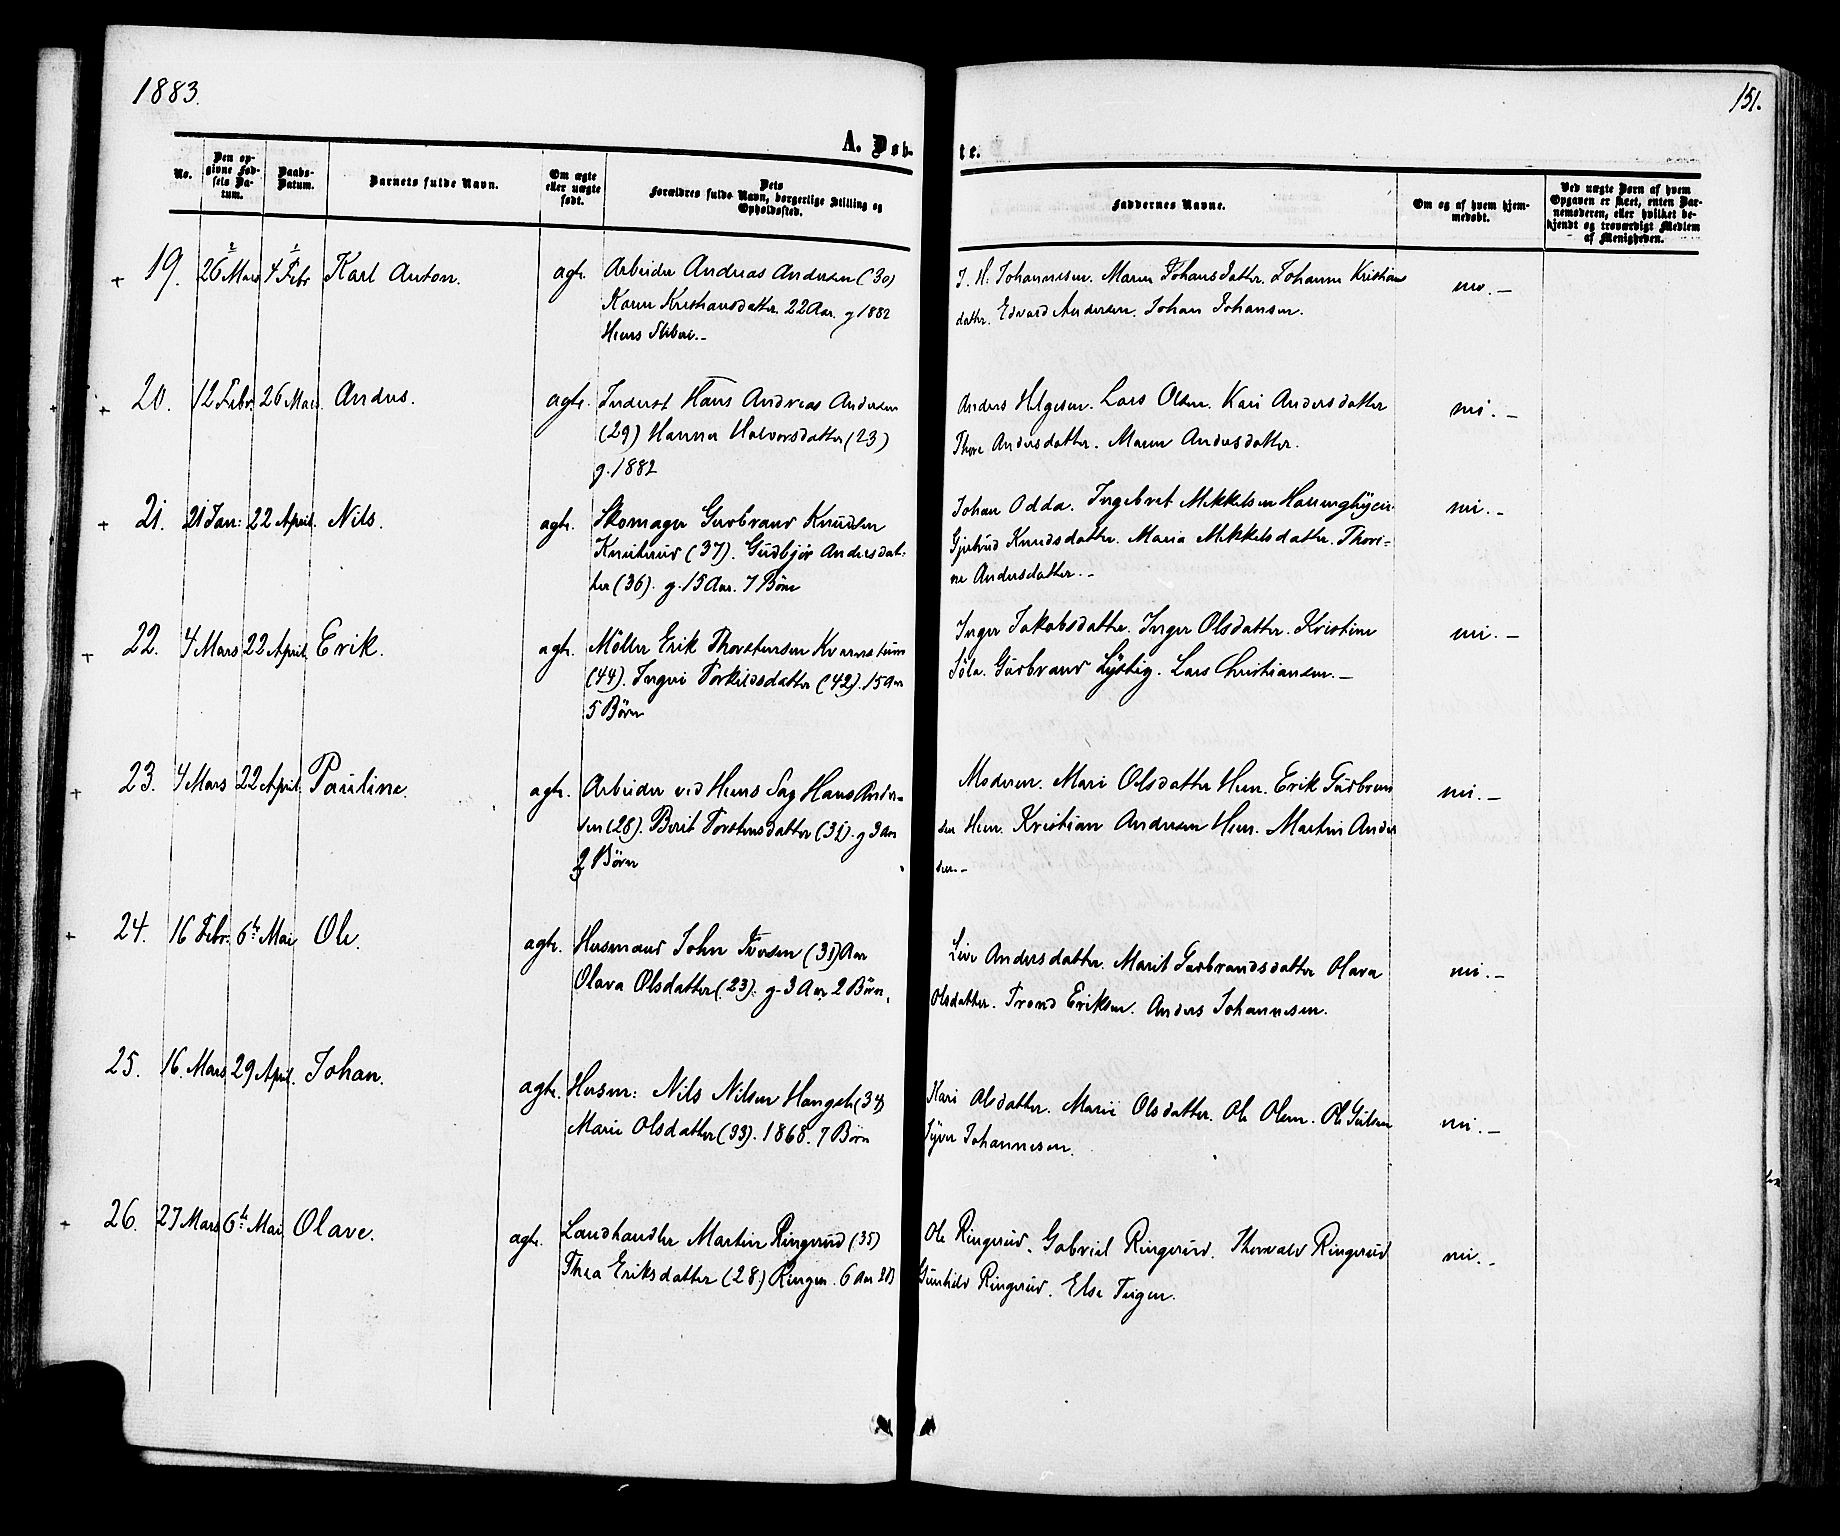 1883.
151.
A. Døb- te.
No.
Den opgivne Fødsels Datum.
Daabs-Datum.
Barnets fulde Navn.
Om ægte eller uægte født.
Dets Forældres fulde Navn, borgerlige Stilling og Opholdssted.
Faddernes Navne.
Om og af hvem hjemmedøbt.
Ved uægte Børn af hvem Opgaven er skeet, enten Barnemoderen, eller hvilket bekjendt og troværdigt Medlem af Menigheden.
+ 19. 26 Mars 4 Febr Karl Anton. agte
Arbeider Andreas Andersen (30)
Karen Kristiansdatter. 22 Aar. g 1882
Hens
J. H. Johannesen. Maren Johansdatter. Johanne Kristians
datter. Edvard Andersen. Johan Johansen.
+ 20. 12 Febr. 26 Mars. Andus. agte.
Inderst Hans Andreas Andersen
(29) Hanna Halvorsdatter (23)
g. 1882
Anders Helgesen. Lars Olsen. Kari Andersdatter
Thore Andersdatter. Maren Andersdatter.
ni. –
+ 21. 21 Jan: 22 April. Nils. agte.
Skomager Gudbrand Knudsen
Knuterud (37). Gudbjør Andersdat-
ter (36). g. 15 Aar. 7 Børn
Johan Odda. Ingebret Mikkelsen
Gjertrud Knudsdatter. Maria Mikkelsdatter. Thori-
ne Andersdatter. –
ni. –
+ 22. 4 Mars 22 April. Erik. agte.
Møller Erik Thorstensen Kvernstuen
(44). Ingri Torkildsdatter (42). 15 Aar
5 Børn
Inger Jakobsdatter. Inger Olsdatter. Kristine
Gudbrand Lystig. Lars Christiansen. –
ni. –
+ 23. 4 Mars 22 April. Pauline. agte.
Arbeider ved Hens Sag Hans Ander-
sen (28). Berit Torstensdatter (31). g 3 Aar
2 Børn
Moderen. Mari Olsdatter Hen. Erik Gudbran
sen Hen. Kristian Andersen Hen. Martin Ander
sen. –
ni. –
+ 24. 16 Febr. 6te Mai Ole. agte.
Husmand John Iversen (31) Aar
Olava Olsdatter (23). g. 3 Aar 2 Børn.
Live Andersdatter. Marit Gudbrandsdatter Olava
Olsdatter. Trond Eriksen. Anders Johannesen.
ni. –
25. 16. Mars 29 April. Johan. agte.
Husm: Nils Nilsen (34)
Marie Olsdatter (33). 1868. 7 Børn
Kari Olsdatter. Marie Olsdatter. Ole Olsen. Ole
Syver Johannesen.
ni. –
+ 26. 27 Mars 6te Mai Olave. agte.
Landhandler Martin Ringerud (35)
Thea Eriksdatter (28) Ringer. 6 Aar 2 B
Ole Ringerud. Gabriel Ringerud. Thorvald Ringerud
Gunhild Ringerud. Else
ni. –